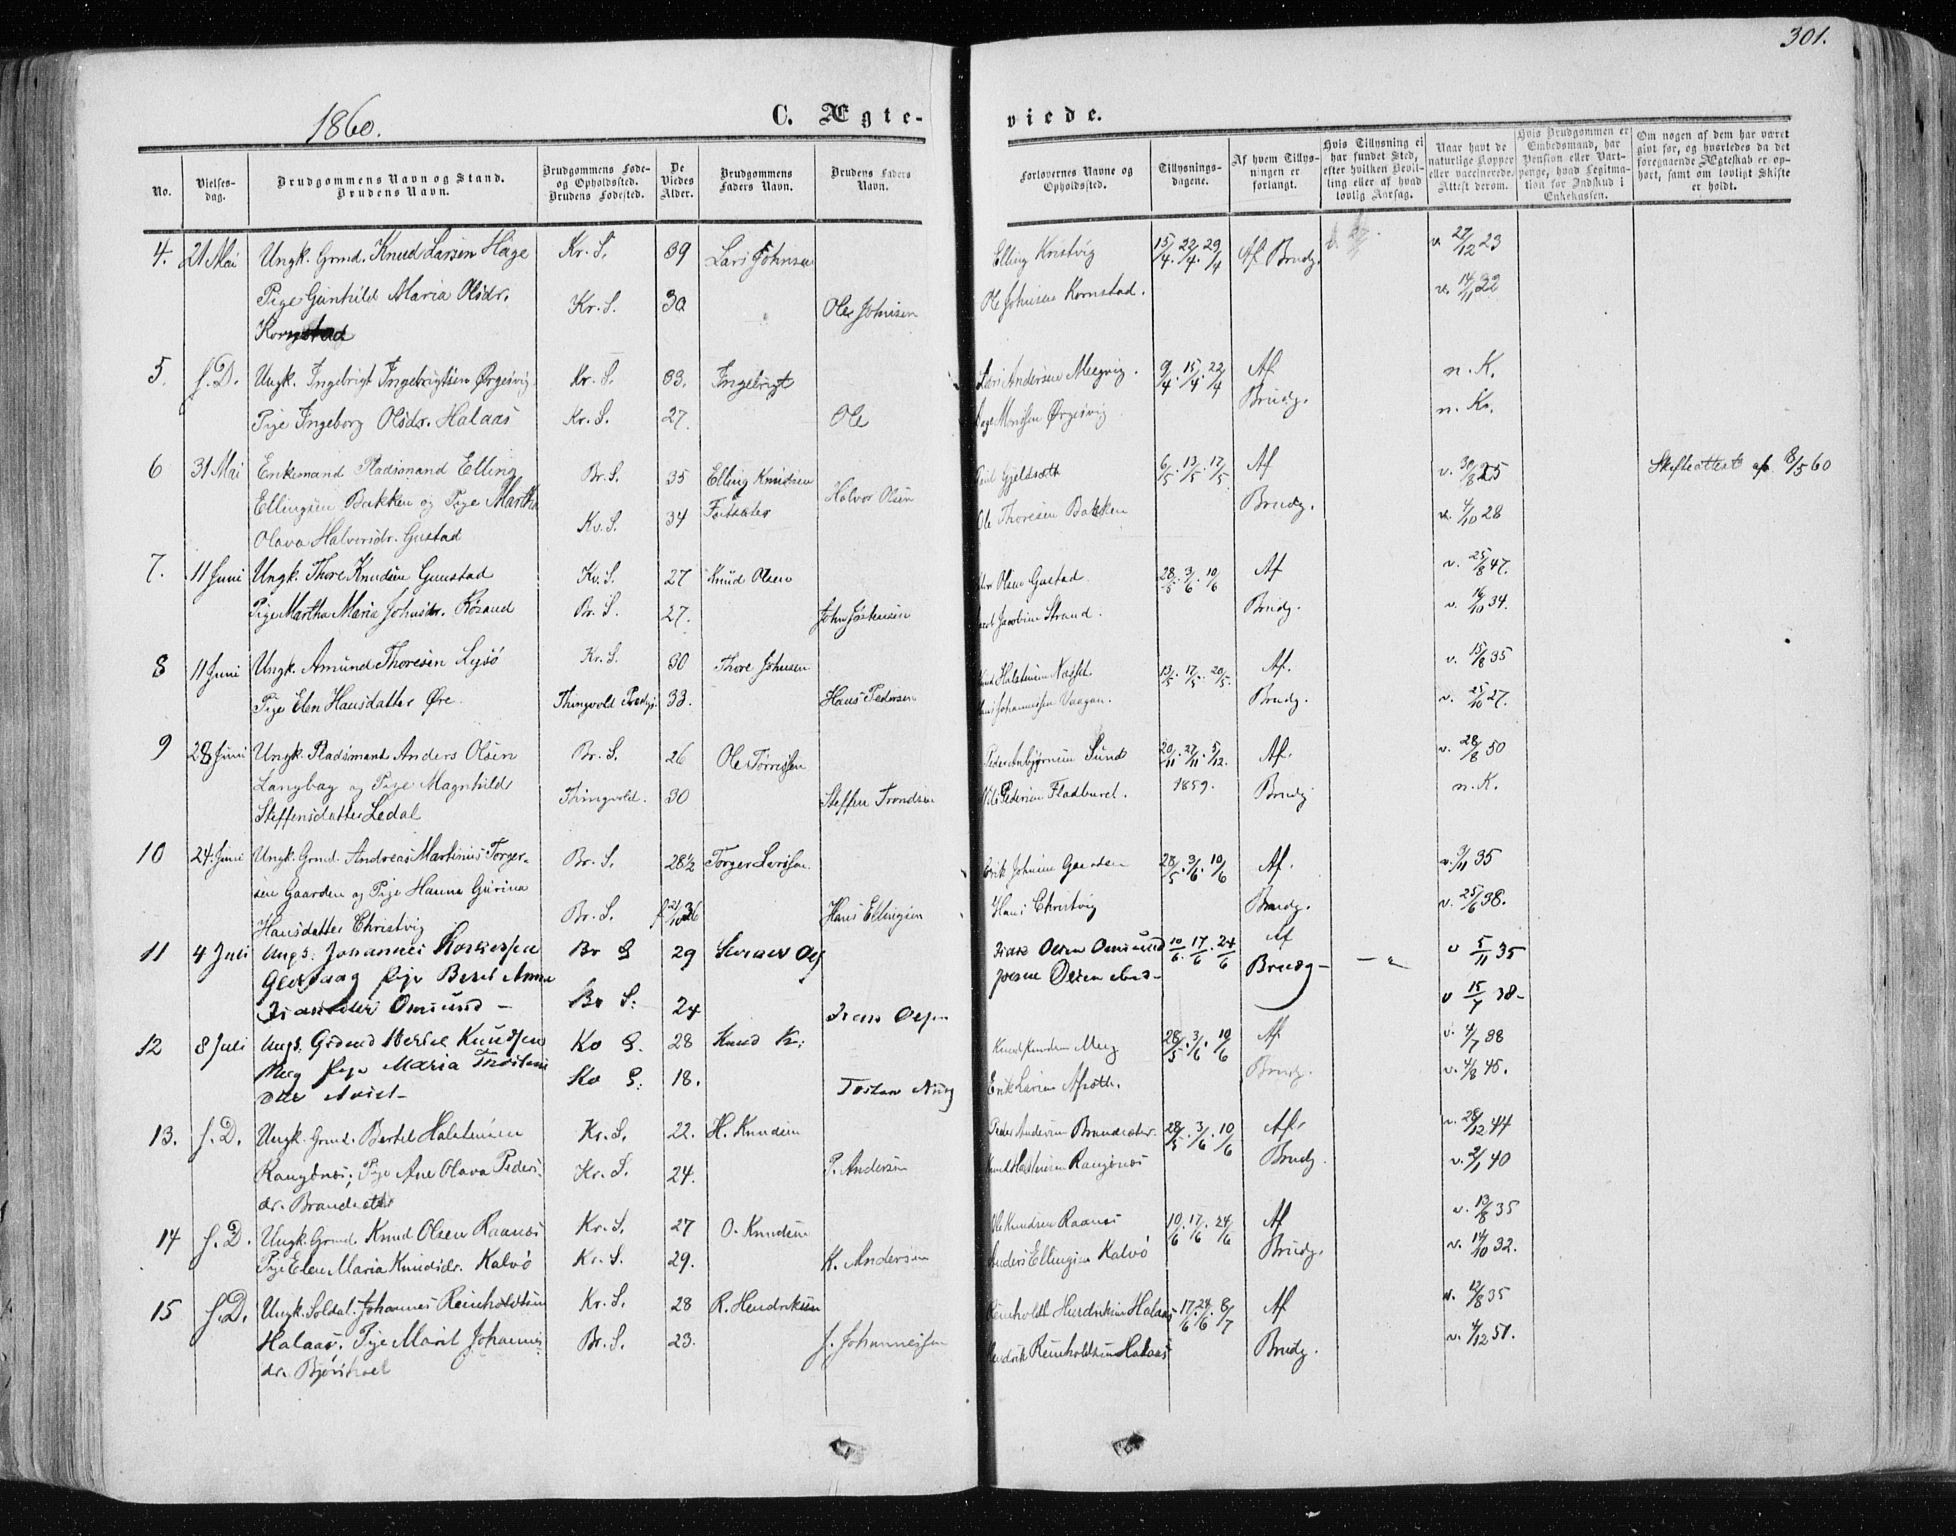 301.
1860.
C. Ægte-
viede.
No.
Vielses-
dag.
Brudgommens Navn og Stand.
Brudens Navn.
Brudgommens Føde-
og Opholdssted.
Brudens Fødested.
De
Viedes
Alder.
Brudgommens
Faders Navn.
Brudens Faders
Navn.
Forlovernes Navne og
Opholdssted.
Tillysnings-
dagene.
Af hvem Tillys-
ningen er
forlangt.
Hvis Tillysning ei
har fundet Sted,
efter hvilken Bevil-
ling eller af hvad
lovlig Aarsag.
Naar havt de
naturlige Kopper
eller vaccinerede.
Attest derom.
Hvis Brudgommen er
Embedsmand, har
Pension eller Vart-
penge, hvad Legitma-
tion for Indskud i
Enkekassen.
Om nogen af dem har været
gift før, og hvorledes da det
foregaaende Ægteskab er op-
hørt, samt om lovligt Skifte
er holdt.
4. 21 Mai Ungk. Grmd. Knud Larsen Hage Kr. S. 39 Lars Johnsen Elling Kristvig 15/4. 22/4. 29/4 Af Brudg. v. 27/12 23
Pige Gunhild Maria Olsdr. Kr. S. 30 Ole Johnsen Ole Johnsen Kornstad. v. 14/11 22
Kornstad
5. s. D. Ungk. Ingebrigt Ingebrigtsen Ørgesvig Kr. S. 33. Ingebrigt Lars Andersen Meegvig. 9/4. 15/4. 22/4 Af n. K.
Pige Ingeborg Olsdr. Halaas Kr. S. 27. Ole Ørgesvig Brudg. n. K.
6 31 Mai Enkemand Pladsmand Elling Br. S. 35 Elling Knutsen Gjeldsæth 6/5. 13/5. 17/5 Af v. 30/8 25 Skifteattest af 8/5 60
Ellingsen Bakken og Pige Martha Kv. S. 34 Halvor Olsen Ole Thoresen Bakken Brudg. v. 4/10 28
Olava Halvorsdr. Gustad
7. 11 Juni Ungk. Thore Knudsen Gunstad Kv. S. 27 Knud Olsen Olsen Gustad 28/5. 3/6. 10/6 Af v. 25/8 47.
Pige Martha Maria Johnsdr. Røsand Br. S. 27. John Jacobsen Strand. Brudg. v. 16/10 34.
8 11 Juni Ungk. Amund Thoresen Lysø Kr. S. 30 Thore Johnsen Halstensen 13/5. 17/5. 20/5. Af. v. 15/8 35
Pige Elen Hansdatter Øre Thingvold 33. Hans Pedersen Johannesen Vaagan. Brudg. v. 25/10 27.
9 28 Juni Ungk. Pladsmand Anders Olsen Br. S. 26 Ole Torresen Peder Sund 20/11. 27/11. 5/12. Af. v. 28/8 50
Langbag og Pige Magnhild Thingvold. 30 Steffen Trondsen Nils Pedersen 1859. Brudg. n. K.
Steffensdatter Ledal
10 24. Juni Ungk. Grmd. Andreas Martinus Torger- Br. S. 28½ Torger Larssen Erik Johnsen Gaarden 28/5. 3/6. 10/6 Af. v. 9/11 35
sen Gaarden og Pige Hanna Gurina Br. S. Hans Ellingsen Hans Christvig Brudg. v. 25/6 38.
Hansdatter Christvig
11 4 Juli Ungk. Johannes Br S 29 Olsen Omsund 10/6. 17/6. 24/6 Af v 5/11 35
Pige Beret Anna Olsen Brudg –
Omsund – Br S: 24 v 15/7 38-
12 8 Juli Ungk. Grdmd Knudsen Ko S. 28 Knud K: Knud Knudsen Meeg 28/5. 3/6. 10/6 Af v. 4/7 38
Meeg Pige Maria Ko S: 18. Erik Larsen Brudg. v. 4/8 45.
13. s. D. Ungk. Grmd. Bertel Halstensen Kr. S. 22. H. Knudsen Peder Andersen Brandsæter. 28/5. 3/6. 10/6 Af. v. 28/12 44
Rangønæs; Pige Ane Olava Peders- Kr. S. 24. P. Andersen Halstensen Rangønæs Brudg. v. 2/1 40
dr. Brandsæter
14 s. D. Ungk. Grmd. Knud Olsen Raanæs Kr. S. 27 O. Knudsen Ole Knudsen Raanæs 10/6. 17/6. 24/6 Af v. 13/8 35
Pige Elen Maria Knudsdr. Kalvø Kr. S. 29. K. Andersen Anders Ellingsen Kalvø Brudg. v. 14/10 32.
15 s. D. Ungk. Soldat. Johannes Reinholdtsen Kr. S. 28 R. Hendriksen Reinholdt Hendriksen Halaas 17/6. 24/6. 8/7 Af v. 12/8 35
Halaas. Pige Marit Johannes- Br. S. 23. J. Johannessen Hendrik Reinholdtsen Halaas Brudg. v. 4/12 51.
dr.